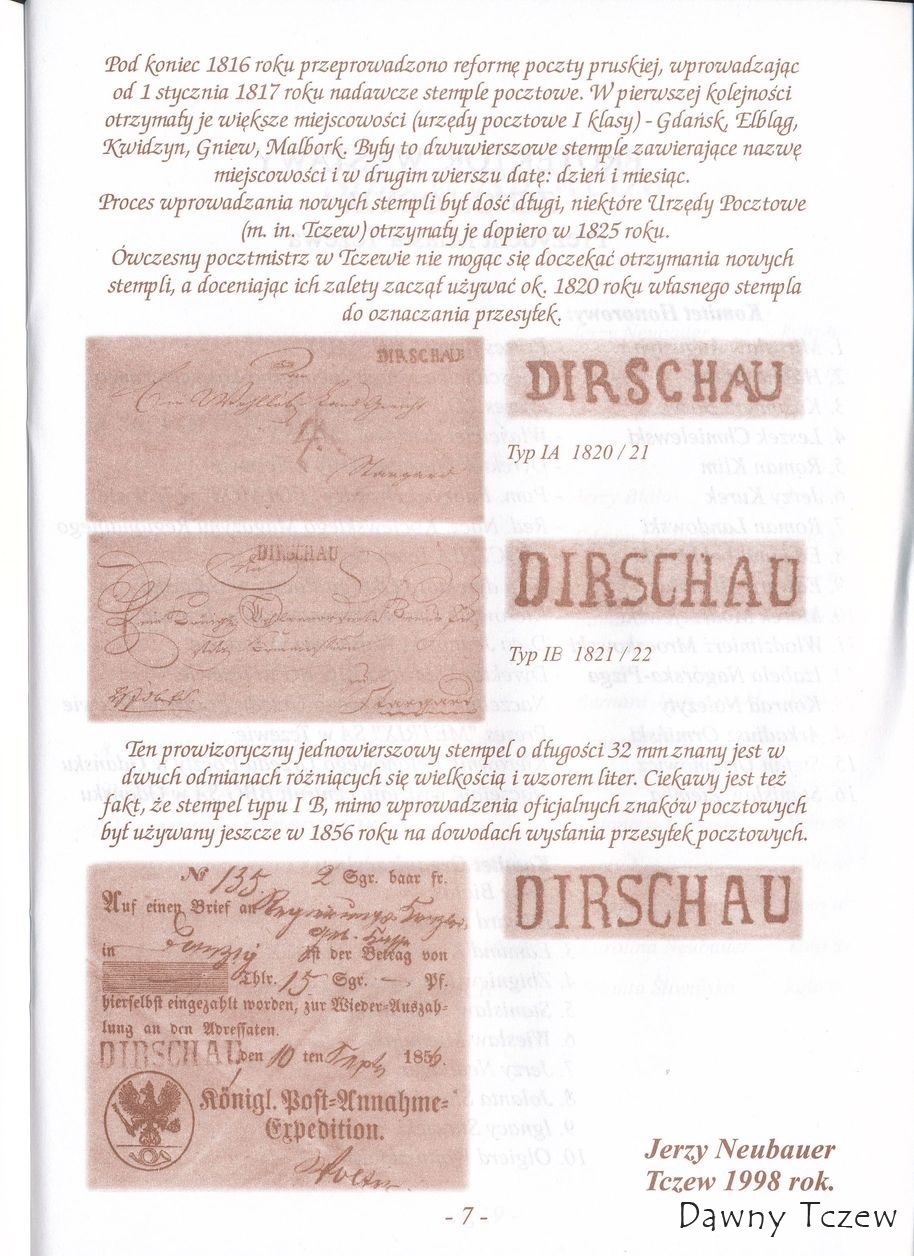 Pod koniec 1816 roku przeprowadzono reformę poczty pruskiej, wprowadzając
od 1 stycznia 1817 roku nadawcze stemple pocztowe. W pierwszej kolejności
otrzymały je większe miejscowości (urzędy pocztowe I klasy) - Gdańsk, Elbląg,
Kwidzyn, Gniew, Malbork. Były to dwuwierszowe stemple zawierające nazwę
miejscowości i w drugim wierszu datę: dzień i miesiąc.
Proces wprowadzania nowych stempli był dość długi, niektóre Urzędy Pocztowe
(m. in. Tczew) otrzymały je dopiero w 1825 roku.
Ówczesny pocztmistrz w Tczewie nie mogąc się doczekać otrzymania nowych
stempli, a doceniając ich zalety zaczął używać ok. 1820 roku własnego stempla
do oznaczania przesyłek.
DIRSCHAU
Stargard
DIRSCHAU
Typ IA 1820 / 21
DIRSCHAU
Stargard
DIRSCHAU
Typ IB 1821 / 22
Ten prowizoryczny jednowierszowy stempel o długości 32 mm znany jest w
dwuch odmianach różniących się wielkością i wzorem liter. Ciekawy jest też
fakt, że stempel typu I B, mimo wprowadzenia oficjalnych znaków pocztowych
był używany jeszcze w 1856 roku na dowodach wysłania przesyłek pocztowych.
No 135. 2 Sgr. baar fr.
Auf einen Brief an
in Danzig ist der Betrag von
Thlr. 15 Sgr. — Pf.
hierselbst eingezahlt worden, zur Wieder-Auszah-
lung an den Adressaten.
DIRSCHAU den 10 ten Sept 1856.
Königl. Post-Annahme-
Expedition.
DIRSCHAU
Jerzy Neubauer
Tczew 1998 rok.
- 7 -
Dawny Tczew